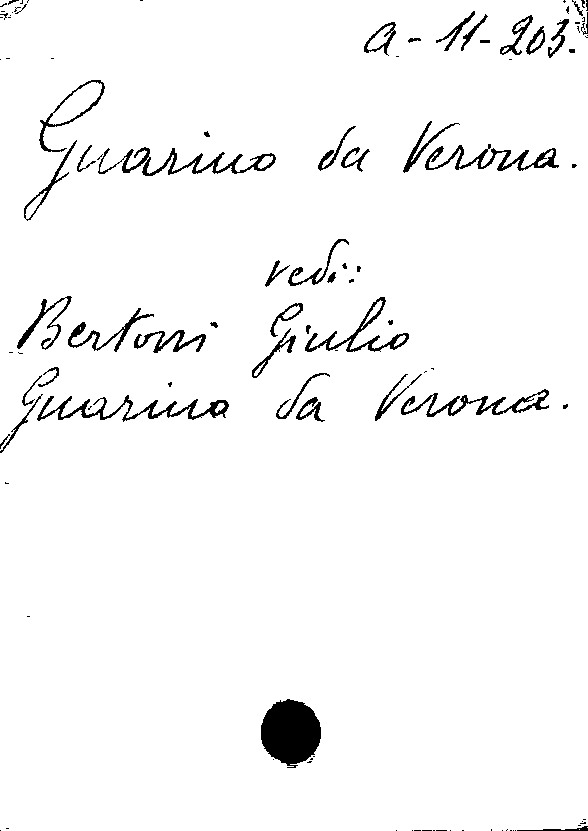 a-11-203.
Guarino da Verona.
vedi:
Bertoni Giulio
Guarino da Verona.